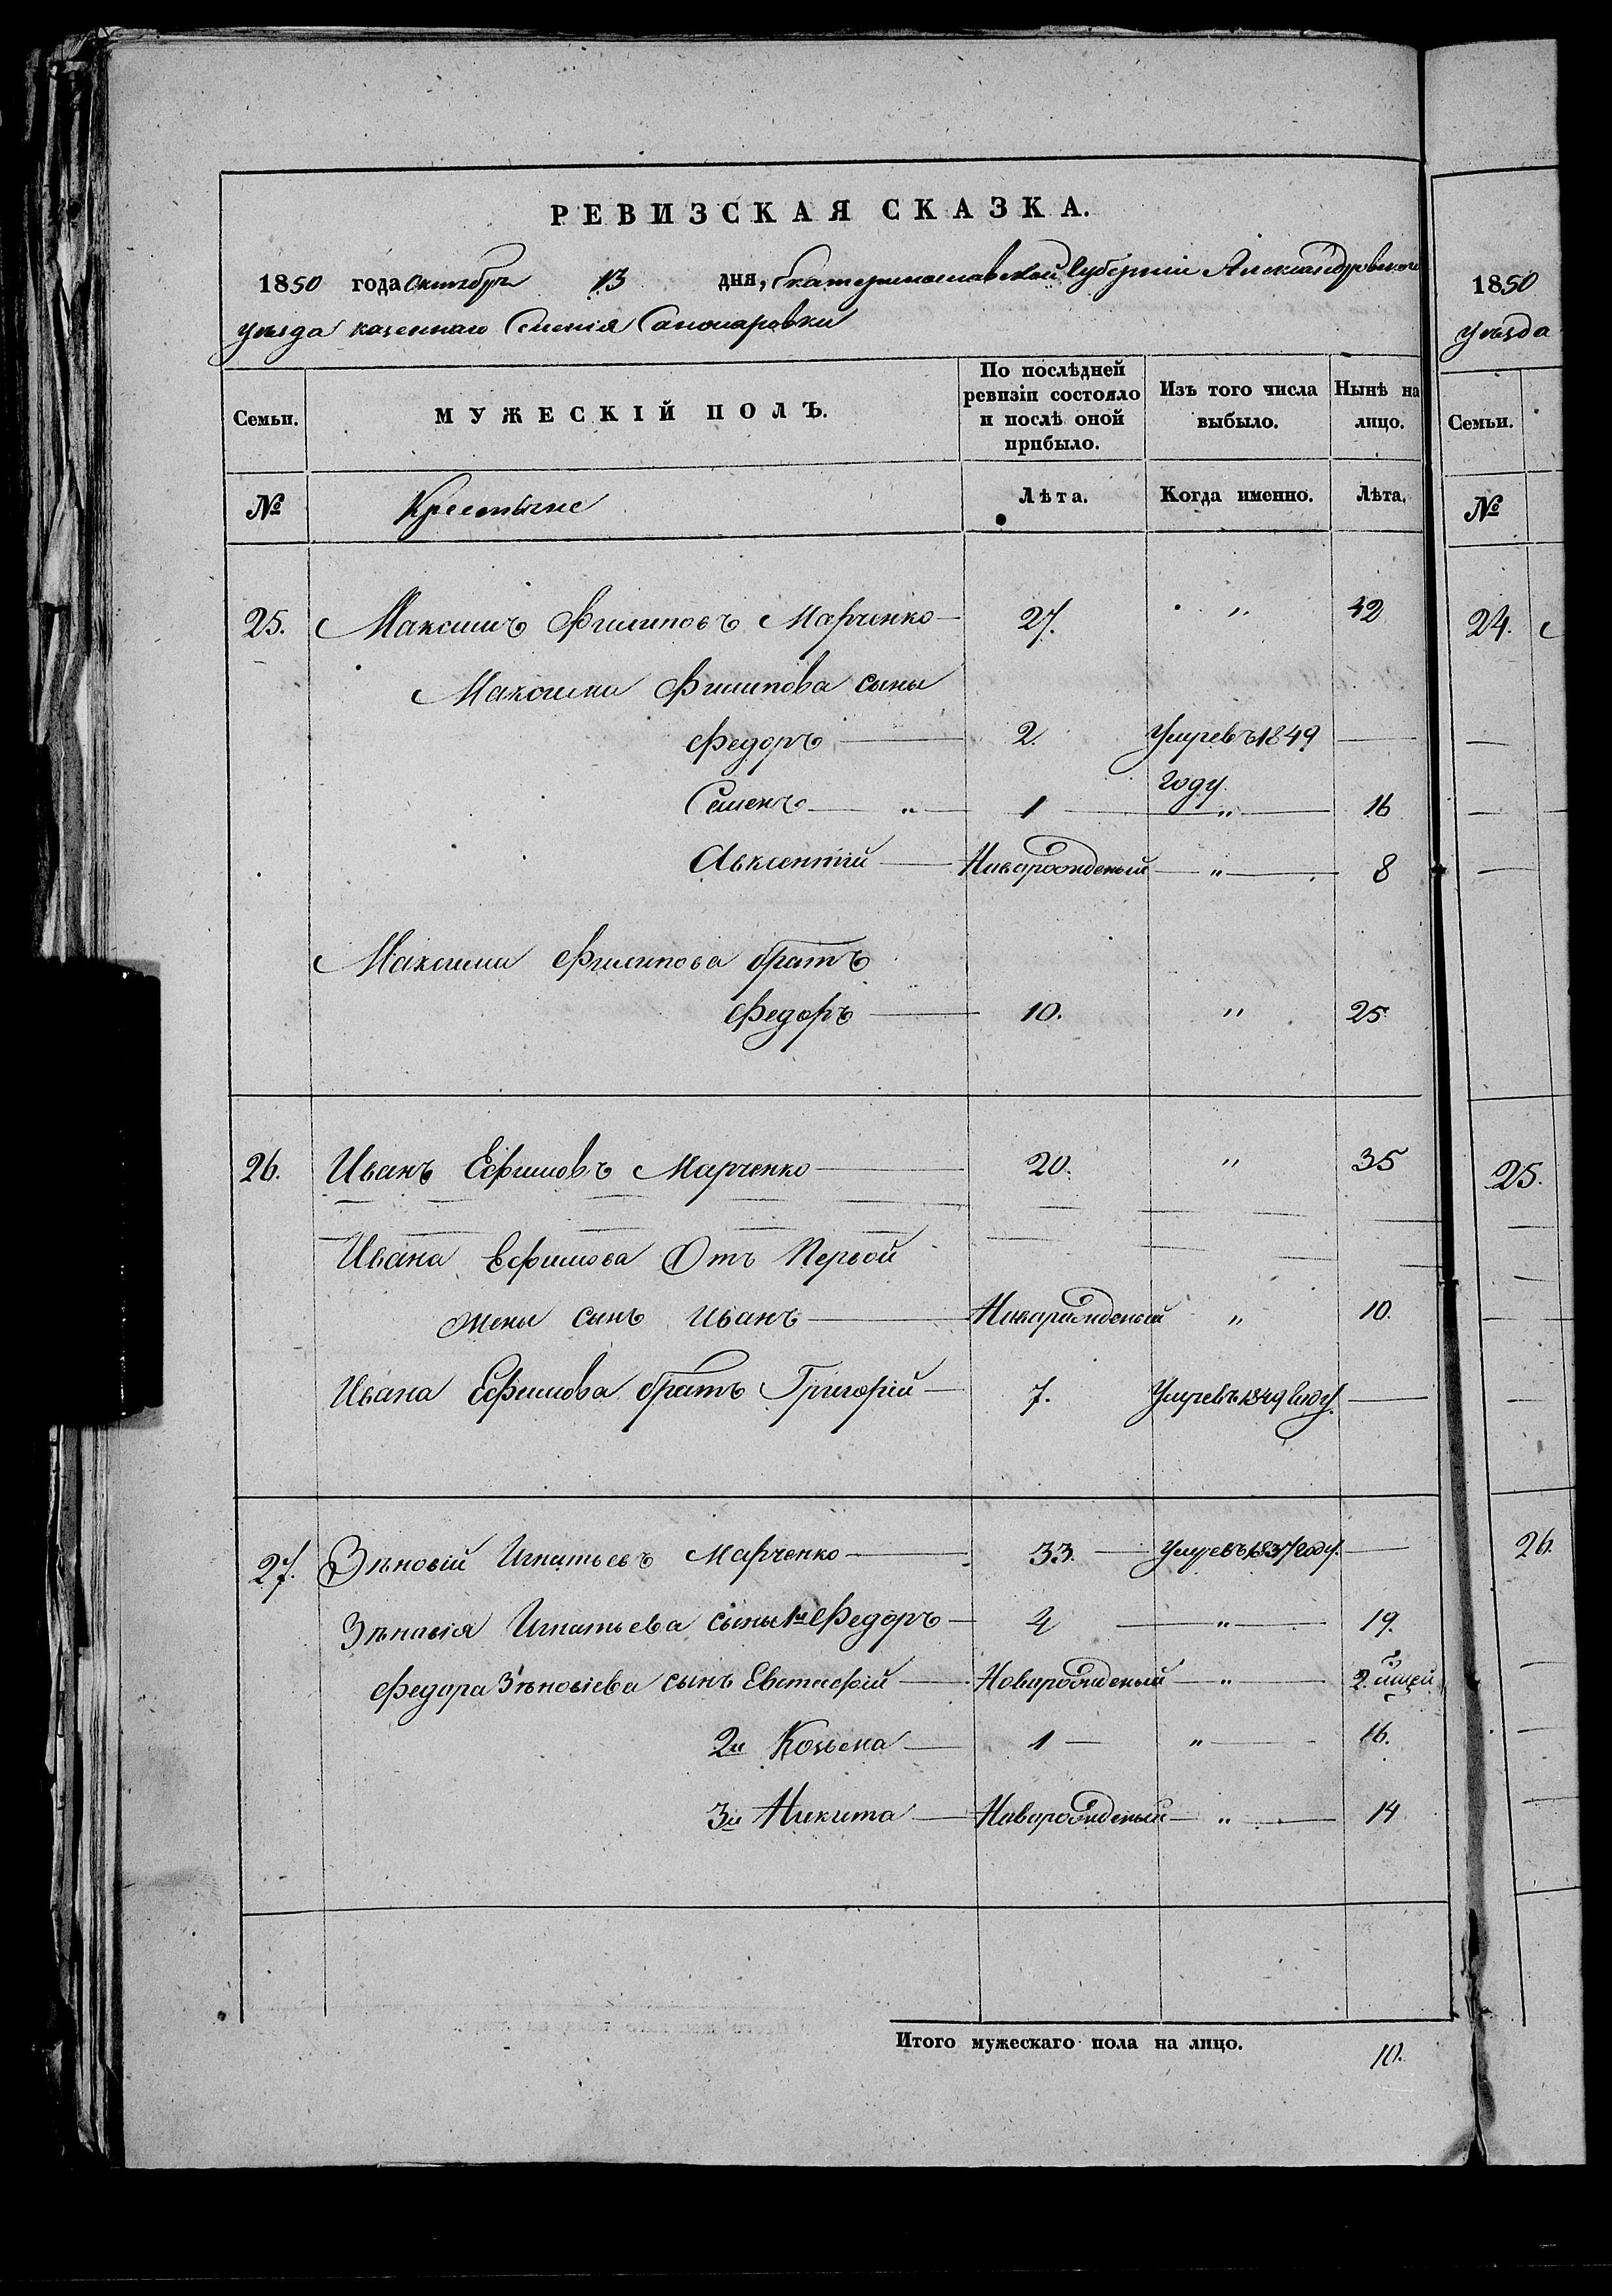 РЕВИЗСКАЯ СКАЗКА.
1850 года Октября 13 дня, Екатеринославской Губерніи Александровскаго
уезда казеннаго Селенія Санжаровки
Семьи. МУЖЕСКІЙ ПОЛЪ. По послѣдней ревизіи состояло и послѣ оной прибыло. Изъ того числа выбыло. Нынѣ на лицо.
№ Крестьяне Лѣта. Когда именно. Лѣта.
25. Максимъ Филиповъ Марченко 27. " 42
Максима Филипова сыны
Федоръ 2. Умре въ 1849
году
Семенъ " 1 " 16
Авксентій Новорожденый " 8
Максима Филипова братъ
Федоръ 10. " 25
26. Иванъ Ефимовъ Марченко 20. " 35
Ивана Ефимова Отъ Первой
жены сынъ Иванъ Новорожденый " 10.
Ивана Ефимова братъ Григорій 7. Умре въ 1849 году.
27. Зѣновій Игнатьевъ Марченко 33. Умре въ 1837 году.
Зѣновія Игнатьева сыны 1й Федоръ 4 " 19.
Федора Зѣновіева сынъ Евстафій Новорожденый " 2
2й Козьма 1 " 16.
3й Никита Новорожденый " 14
Итого мужескаго пола на лицо. 10.
1850
уезда
Семьи.
№
24.
25.
26.